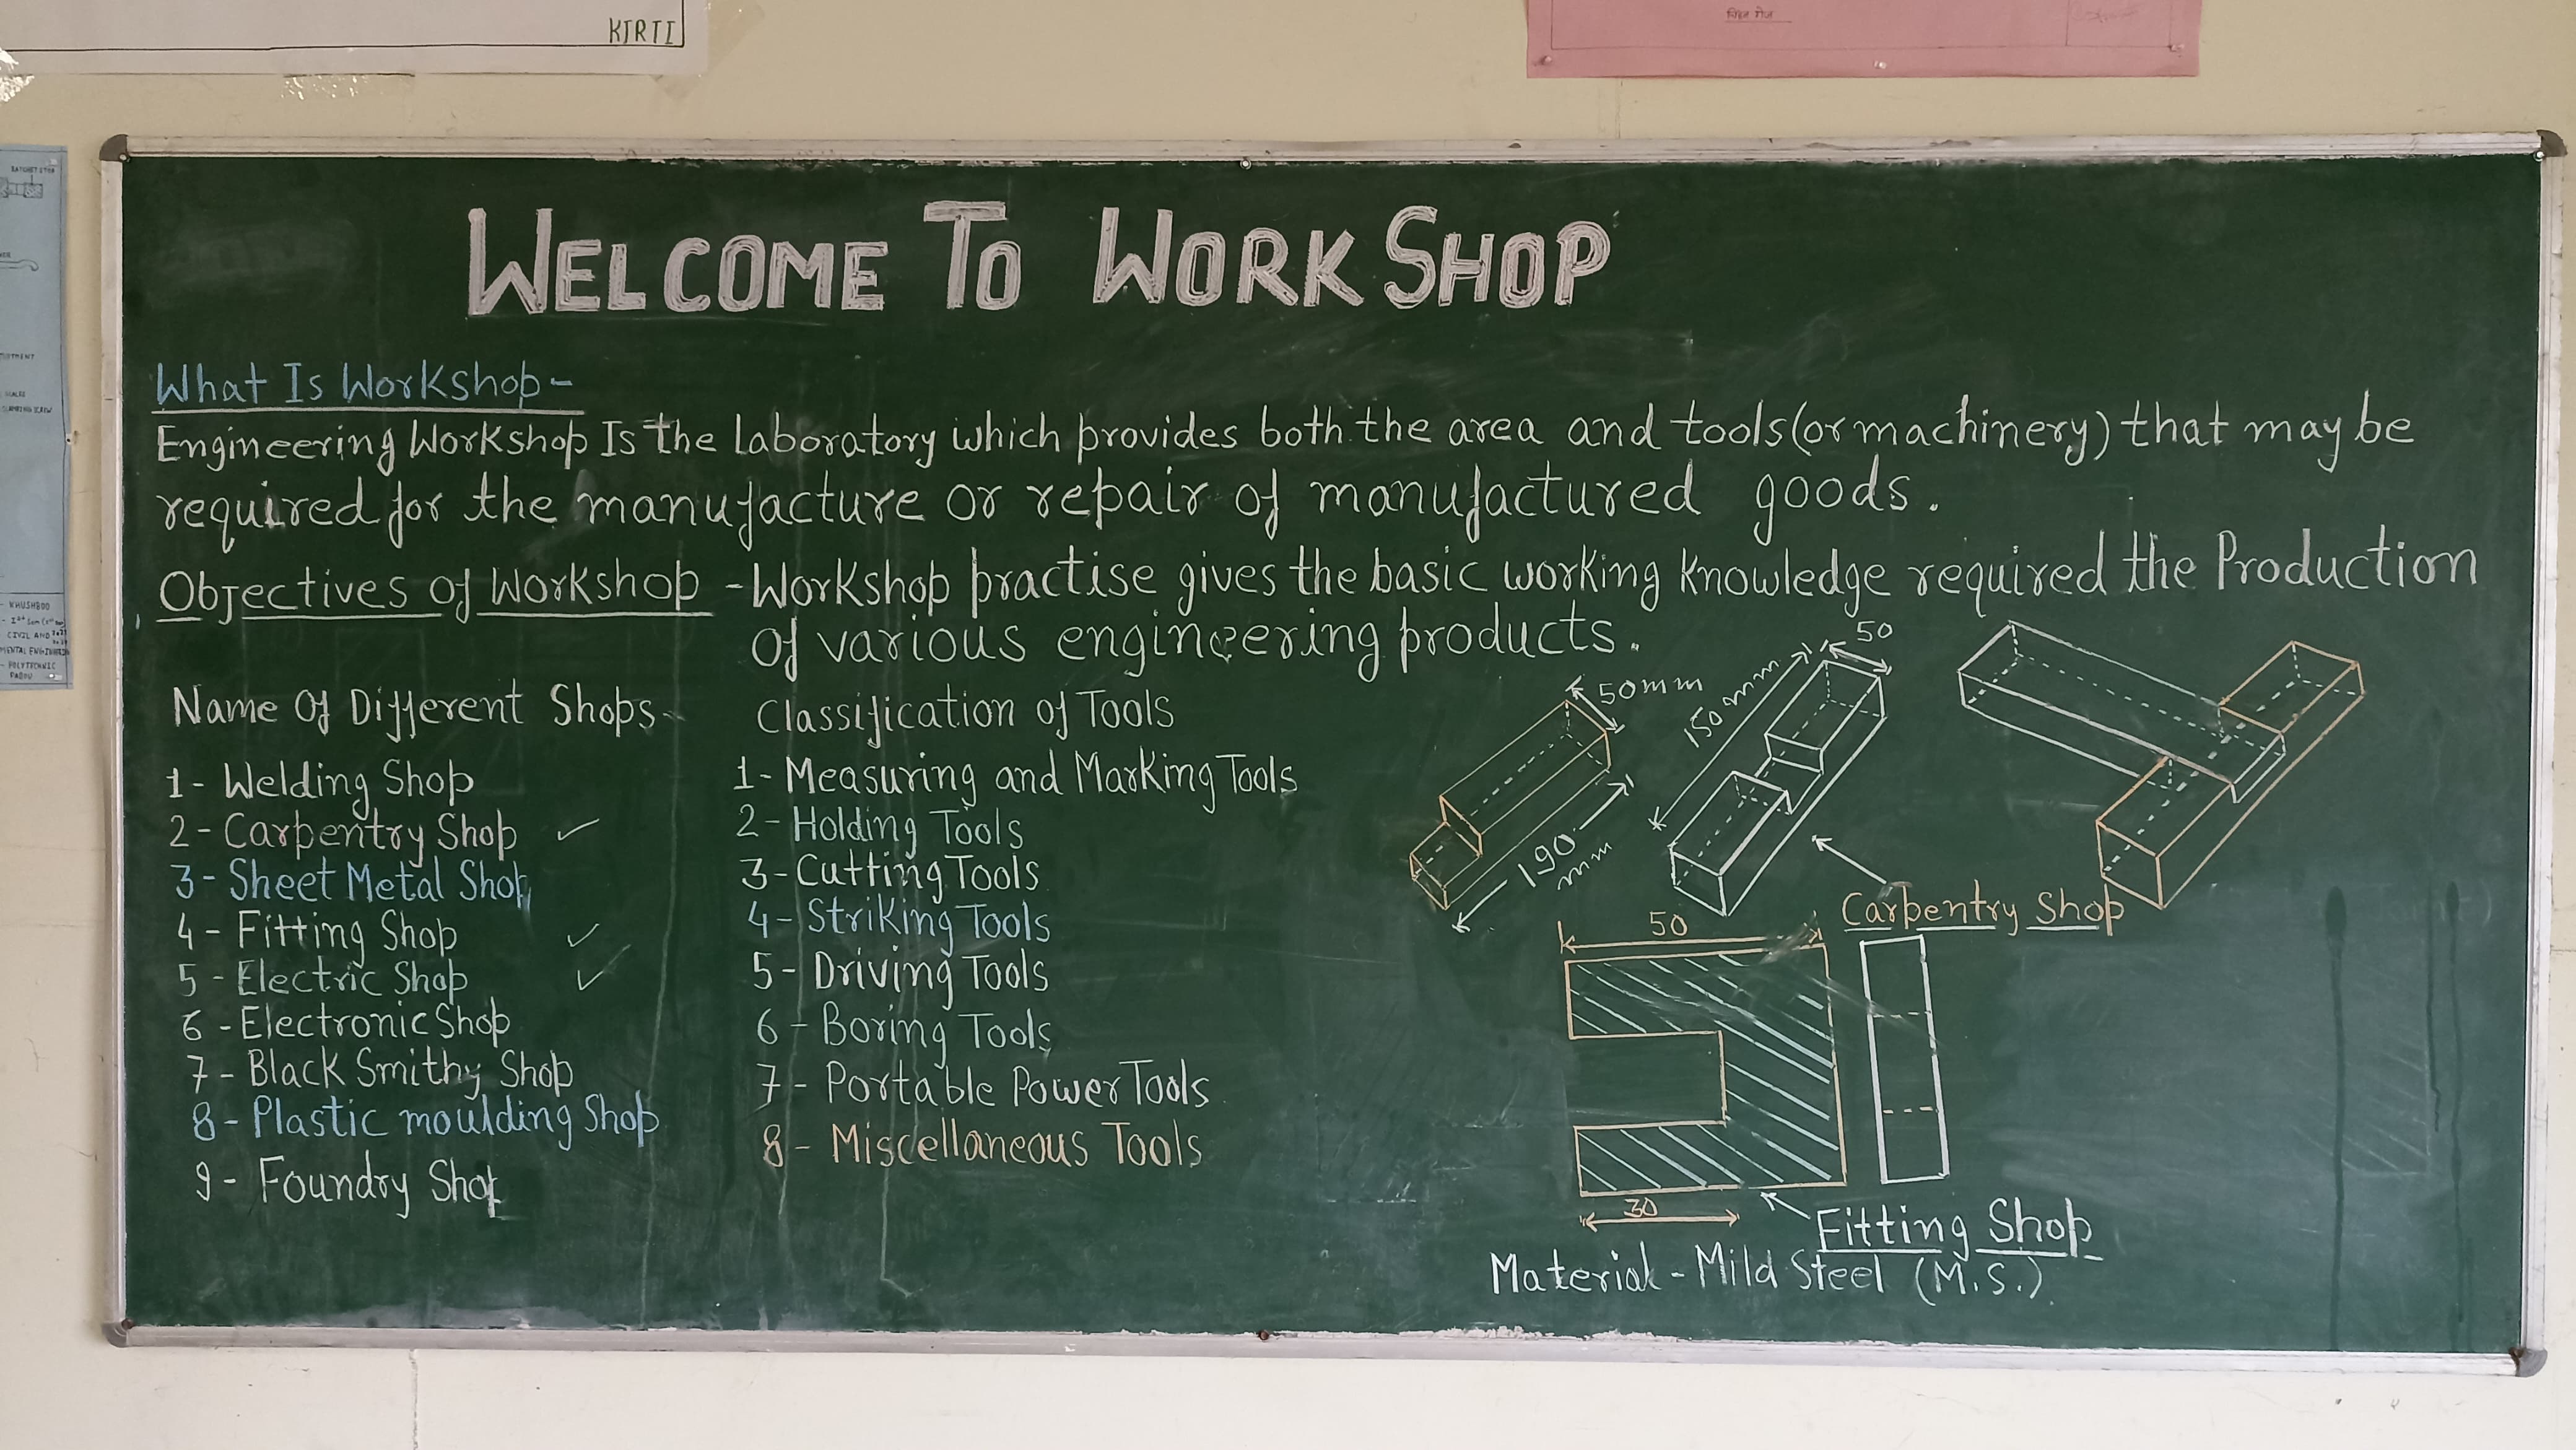 KIRTI
RATCHET STOP
SCALES
CLAMPING SCREW
- KHUSHBOO
CIVIL AND
- POLYTECHNIC
PABOU
WELCOME TO WORKSHOP
What Is Workshop-
Engineering Workshop Is the laboratory which provides both the area and tools(or machinery) that may be
required for the manufacture or repair of manufactured goods.
Objectives of Workshop - Workshop practise gives the basic working knowledge required the Production
of various engineering products.
Name Of Different Shops-
1- Welding Shop
2- Carpentry Shop ✓
3- Sheet Metal Shop
4- Fitting Shop ✓
5- Electric Shop ✓
6- Electronic Shop
7- Black Smithy Shop
8- Plastic moulding Shop
9- Foundry Shop
Classification of Tools
1- Measuring and Marking Tools
2- Holding Tools
3- Cutting Tools
4- Striking Tools
5- Driving Tools
6- Boring Tools
7- Portable Power Tools
8- Miscellaneous Tools
50mm
190
mm
150 mm
50
Carpentry Shop
50
30
Fitting Shop
Material - Mild Steel (M.S.)